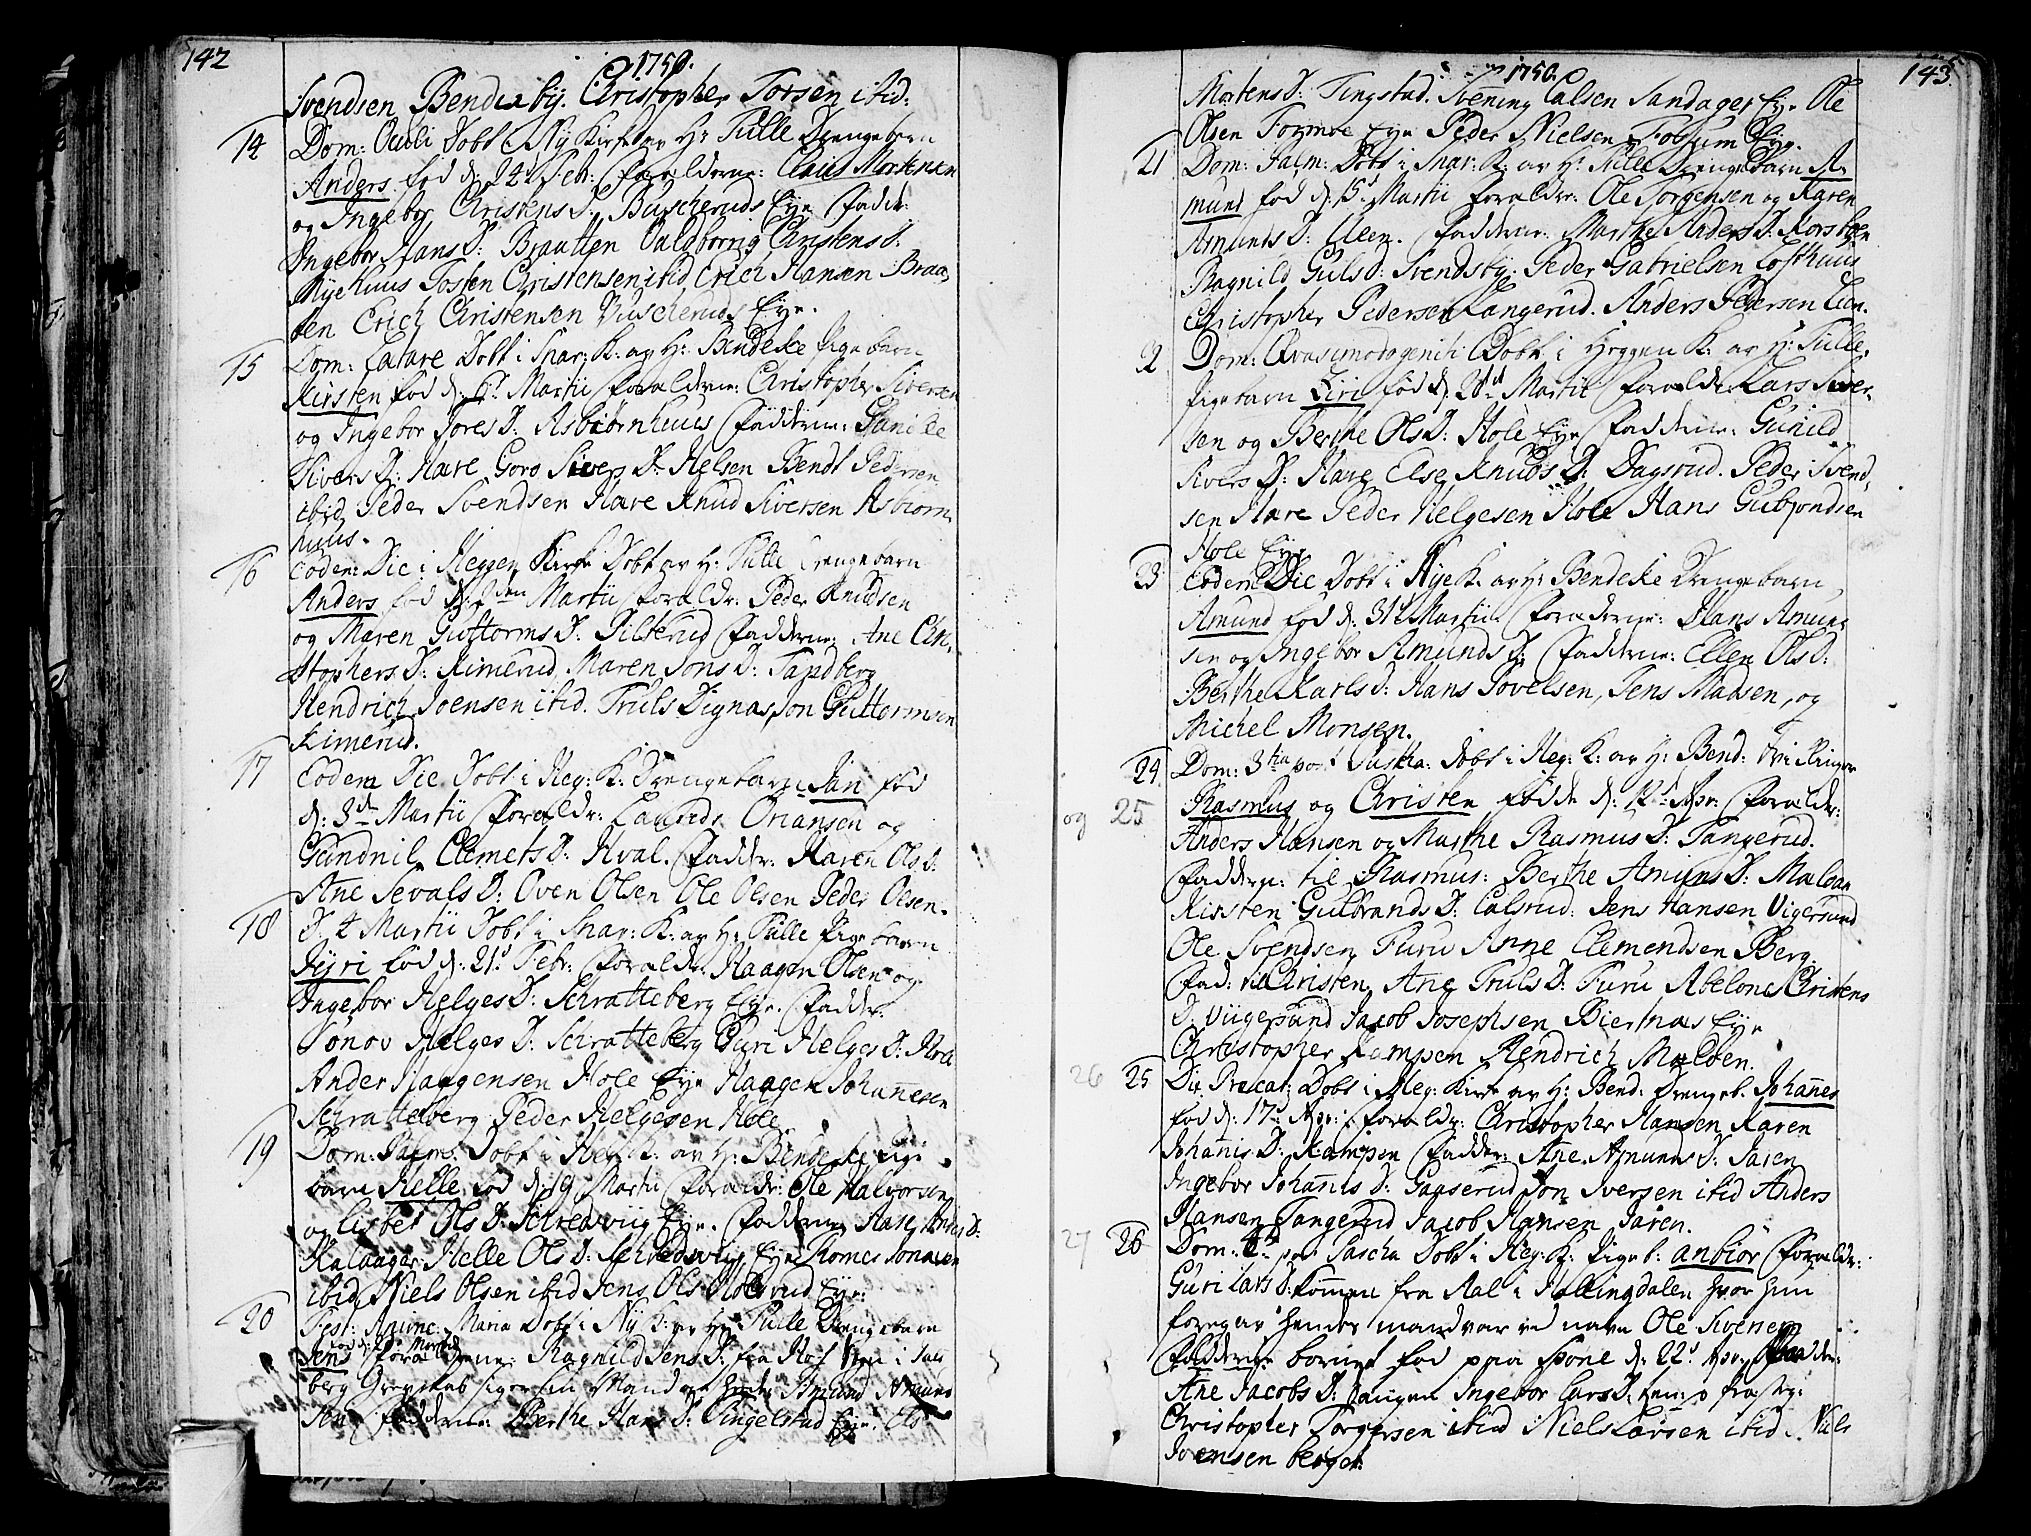 142
1750.
Svendsen Benderby. Christopher Torsen ibid:
14 Dom: Oculi Døbt i Ny Kirke av Hr: Tulle Drengebarn
Anders fød d: 24d Febr: Forælderne: Claus Mortensen
og Ingebor Christens D: Buscheruds Eye Fadde:
Ingebor Hans D: Braatten Valdborrig Christens D:
Nyehuus Tosten Christensen ibid Erich Hansen Braa-
ten Erich Christensen Buscheruds Eye.
15 Dom: Lætare Døbt i Snar: K: av Hr: Bendeke Pige barn
Kirsten fød d: Martii Forælderne: Christopher Siversen
og Ingebor Jores D: Asbiørnhuus Fadderne: Gunild
Sivers D: Hare Goro Sivers D: Helsen Bendt Pedersen
ibid Peder Svendsen Hare Knud Siversen Asbiørn-
huus.
16 Eodem: Die i Heggen Kirke Døbt av Hr: Tulle Drengebarn
Anders fød d: den Martii Forældr: Peder Knudsen
og Maren Guttorms D: Pilterud Fadderne: Ane Chri-
stophers D: Kimerud, Maren Jons D: Tandberg
Hendrich Joensen ibid. Truls Dignas, Jon Guttormsen
Kimerud.
17 Eodem Die Døbt i Heg: K: Drengebarn Jan fød
d: 3de Martii Forældr: Laurids Oriansen og
Gundnil Clemets D: Hval. Faddr: Karen Ols D:
Ane Sevals D: Oven Olsen Ole Olsen Peder Olsen.
18 D. 4 Martii Døbt i Snar: K: av Hr: Tulle Pige barn
Jyri fød d: 21d Febr: Forældr: Haagen Olsen og
Ingebor Helges D: Schratteberg Eye. Fadder:
Sønov Helges D: Schratteberg Guri Helges D: Hole
Ander Haagensen Hole Eye Haagen Johannesen
Schratteberg Peder Helgesen Hole.
19 Dom: Palms: Døbt i Heg: K: av Hr: Bendeke Pige
barn Helle fød d: 19 Martii Forældr: Ole Halvorsen
og Lisbet Ols D: Schredsviig Eye. Fadderne Aase Anders D:
Kalager Helle Ols D: Schredsviig Eye Thomes Jonasen
ibid Niels Olsen ibid Jens Ols: Holsrud Eye:
20 Fest: Anunc: Maria Døbt i Ny K: av Hr: Tulle Drengebarn
Jens Forælderne: Ragnild Jens D: fra Hof Sogn i Jarls
berg Grevskab siger sin Mand Amund Amund
sen Fadderne: Berthe Hans D: Singelstad Eye. Els
143
1750.
Mortens D: Tingstad. Svening Calsen Sandager Eye Ole
Olsen Formoe Eye Peder Nielsen Fossum Eye.
21 Dom: Palm: Døbt i Snar: K: av Hr: Tulle Drengebarn A-
mund fød d: 15d Martii Forældr: Ole Torgensen og Karen
Amunds D: Ulen. Fadderne: Marthe Anders D: Korsboen
Ragnild Guls D: Svendsby. Peder Gabrielsen Lofthuus
Christopher Pedersen Langerud. Anders Pedersen Lien.
22 Dom: Quasimodogeniti Døbt i Heggen K: av Hr: Tulle
Pige barn Siri fød d: 20de Martii Forældr: Lars Siver-
sen og Berthe Ols D: Hole Eye Fadderne: Gunild
Sivers D: Hare Else Knuds D: Dagsrud. Peder Svend-
sen Hare Peder Helgesen Hole Hans Gudjondsen
Hole Eye
23 Eodem Die Døbt i Nye K: av Hr: Bendeke Drengebarn
Amund fød d: 31d Martii Forælderne: Hans Amun-
sen og Ingebor Amunds D: Fadderne: Ellen Ols D:
Berthe Karls D: Hans Jovelsen, Jens Madsen, og
Michel Monsen.
24 Dom: 3tia post Pascha: Døbt i Heg: K: av Hr: Bend:
og 25 Rasmus og Christen fødde d: 12d Apr: Forældr:
Anders Hansen og Marthe Rasmus D: Tangerud.
Fadderne: til Rasmus: Berthe Amunds D: Maleen
Kirsten Gulbrands D: Calsrud: Jens Hansen Vigersund
Ole Svendsen Furu Anne Clemendsen Berg.
Fad: til Christen, Ane Truls D: Furu Abelone Christens
D: Viigersund Jacob Josephsen Biertnæs Eye
Christopher Kampen Hendrich Malben.
26 25 Die Precat: Døbt i Heg: Kirke av Hr: Bend: Drengeb. Johannes
fød d: 17d Apr: Forældr: Christopher Hansen Karen
Johannis D: Kampen Fadder: Ane Amunds D: Jaren
Ingebor Johannis D: Gaaserud Jon Iversen ibid Anders
Hansen Tangerud Jacob Hansen Jaren.
27 26 Dom: 4ta post Pascha Døbt i Heg: K: Pigeb: Anbiør Forældr:
Guri Lars D: kommen fra Aal i Hallingdalen hvor hun
foregav hendes mand var ved navn Ole Svensen
Fadderne barnet fød paa Spone d: 22d Apr: Fadder:
Ane Jacobs D: Haugen Ingebor Lars D:
Christopher Torgersen ibid Niels Larsen ibid. Niels
Joensen berget.